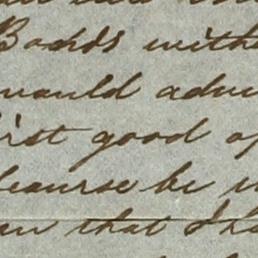 Bonds with
would adv
first good op
course be
that I ha